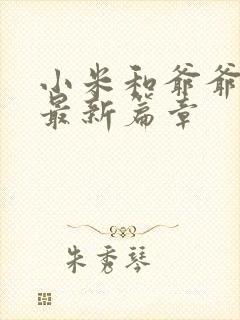 小米和爷爷
最新篇章
朱秀琴